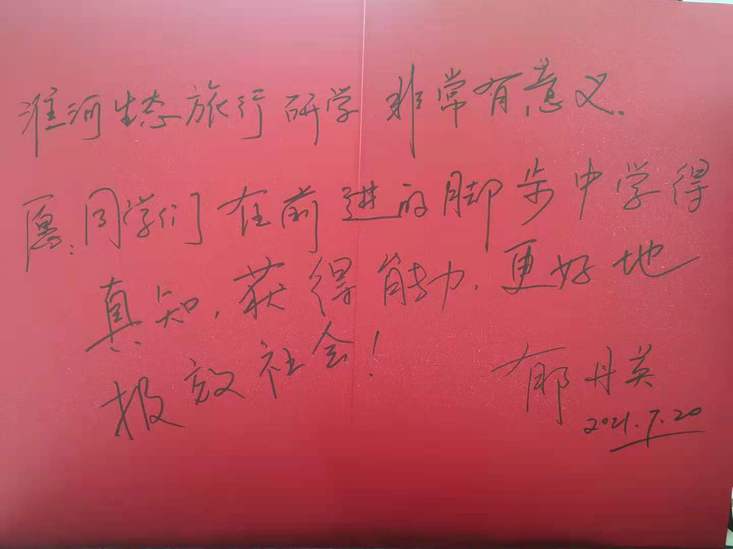 淮河生态旅行研学非常有意义.
愿同学们在前进的脚步中学得
真知,获得能力.更好地
报效社会!
郁丹英
2021.7.20